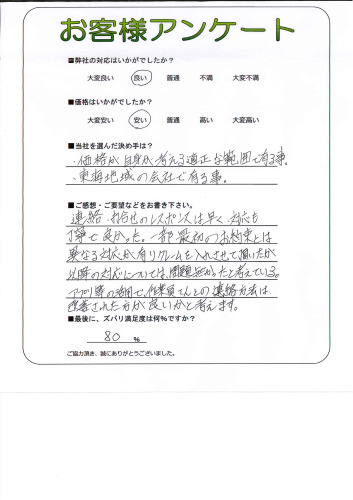 お客様アンケート
■弊社の対応はいかがでしたか?
大変良い 良い 普通 不満 大変不満
■価格はいかがでしたか?
大変安い 安い 普通 高い 大変高い
■当社を選んだ決め手は?
・価格が自身が考える適正な範囲で有る事。
・東海地域の会社で有る事。
■ご感想・ご要望などをお書き下さい。
連絡・お問合せのレスポンスは早く、対応も
丁寧で良かった。一部最初のお約束とは
異なる対応が有りクレームを入れさせて頂いたが
以降の対応については、問題無かったと考えている。
アプリ等の活用で、作業員さんとの連絡方法は、
改善された方が良いかと考えます。
■最後に、ズバリ満足度は何%ですか?
80 %
ご協力頂き、誠にありがとうございました。